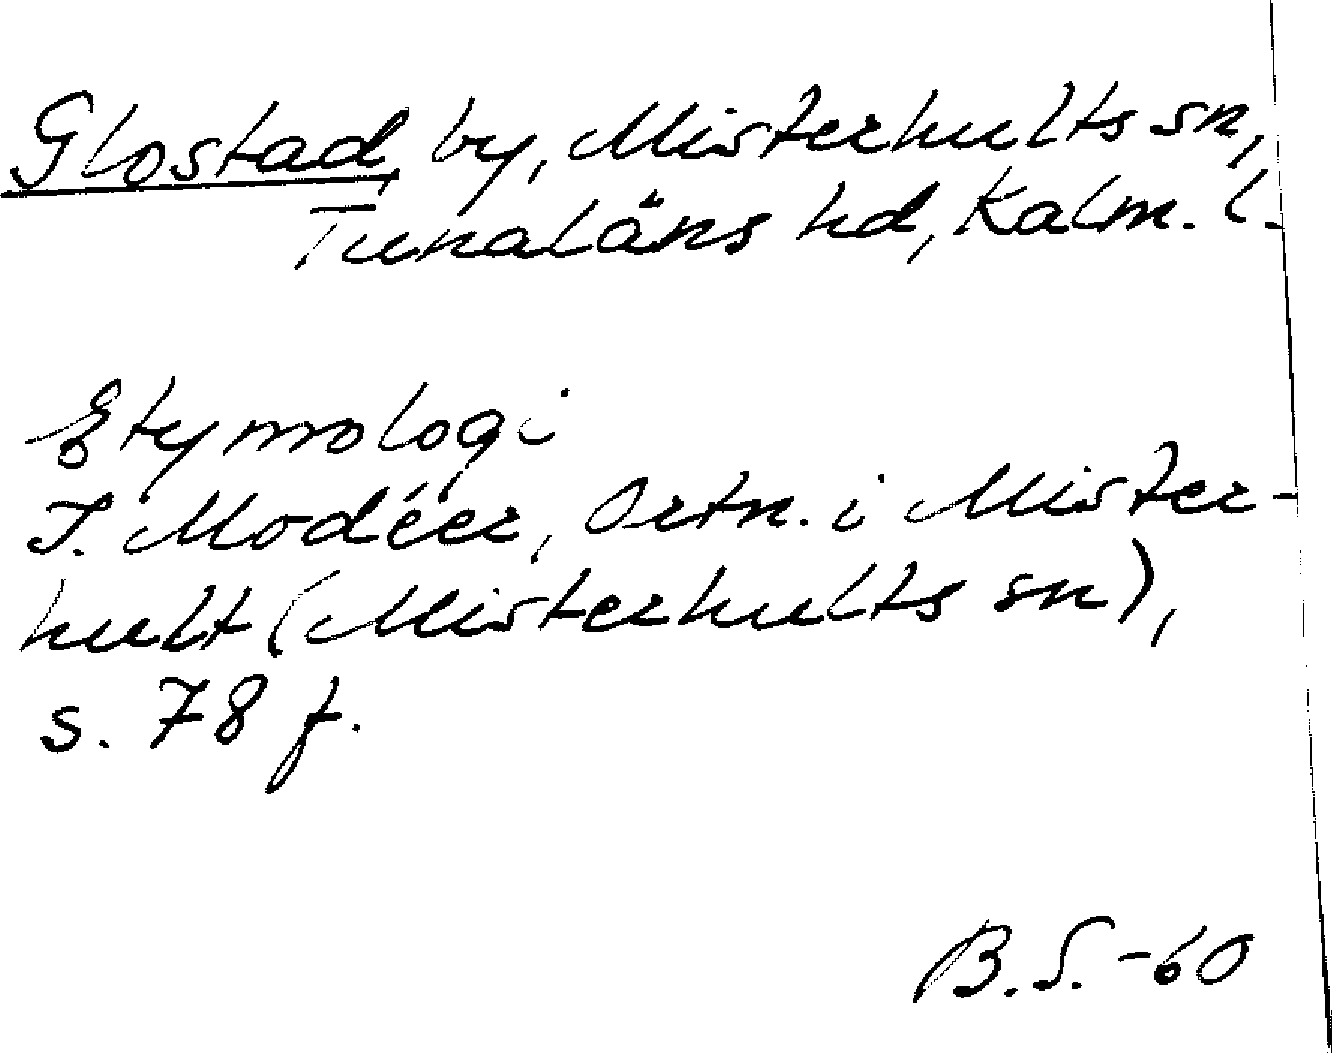 Glostad, by, Misterhults sn,
Tunaläns hd, Kalm. l.
Etymologi
I. Modéer, Ortn. i Mister-
hult (Misterhults sn),
s. 78 f.
B.S.-60